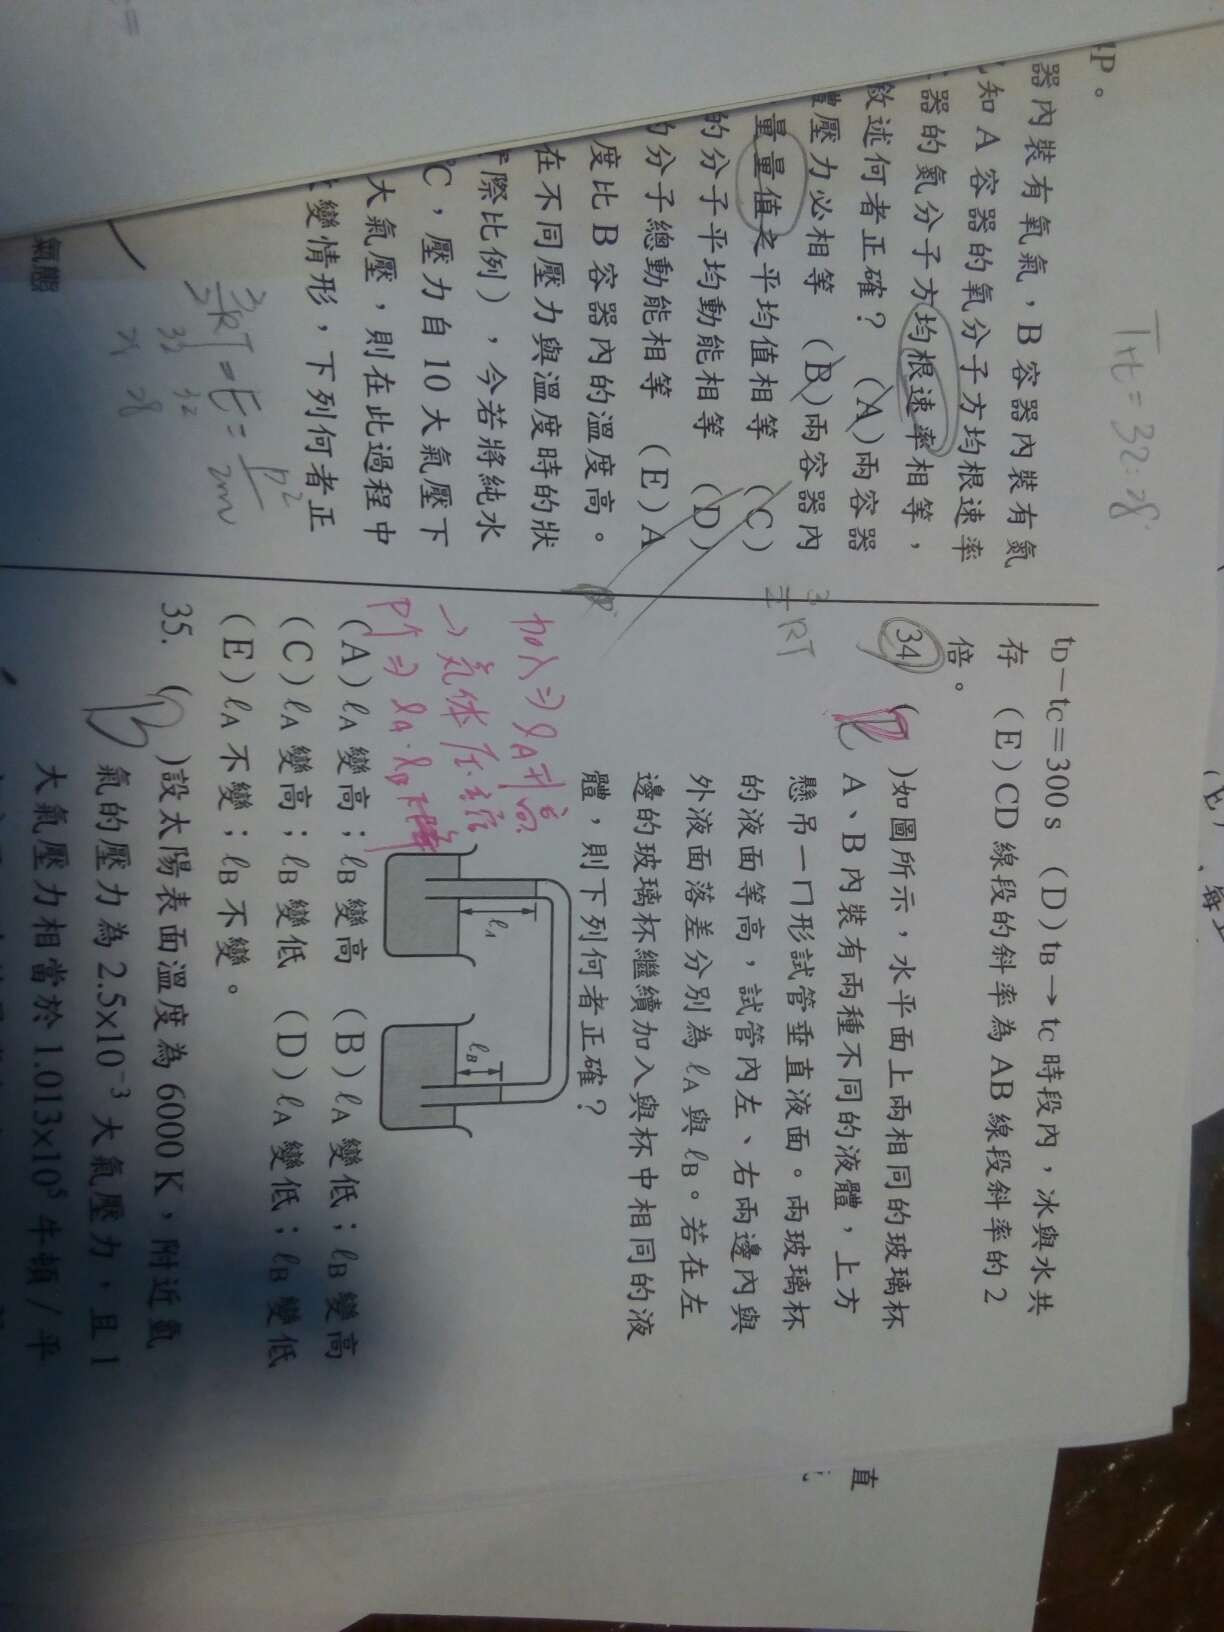 4P。
器內裝有氧氣，B 容器內裝有氮
知 A 容器的氧分子方均根速率
器的氮分子方均根速率相等，
敘述何者正確？ (A)兩容器
體壓力必相等 (B)兩容器內
量量值之平均值相等 (C)
的分子平均動能相等 (D)
分子總動能相等 (E)A
度比 B 容器內的溫度高。
在不同壓力與溫度時的狀
際比例)，今若將純水
℃，壓力自 10 大氣壓下
大氣壓，則在此過程中
變情形，下列何者正
氣態
32:28
3/2 RT = E = p²/2m
32 32
28
tD－tC＝300 s (D) tB→tC 時段內，冰與水共
存 (E) CD 線段的斜率為 AB 線段斜率的 2
倍。
3/2 RT
34 ( )如圖所示，水平面上兩相同的玻璃杯
A、B 內裝有兩種不同的液體，上方
懸吊一ㄇ形試管垂直液面。兩玻璃杯
的液面等高，試管內左、右兩邊內與
外液面落差分別為 ℓA 與 ℓB。若在左
邊的玻璃杯繼續加入與杯中相同的液
體，則下列何者正確？
加入⇒ℓA升高
→氣体压縮
P↑⇒ℓA.ℓB下降
ℓA
ℓB
(A) ℓA 變高；ℓB 變高 (B) ℓA 變低；ℓB 變高
(C) ℓA 變高；ℓB 變低 (D) ℓA 變低；ℓB 變低
(E) ℓA 不變；ℓB 不變。
35. (B)設太陽表面溫度為 6000 K，附近氫
氣的壓力為 2.5×10⁻³ 大氣壓力，且 1
大氣壓力相當於 1.013×10⁵ 牛頓／平
直